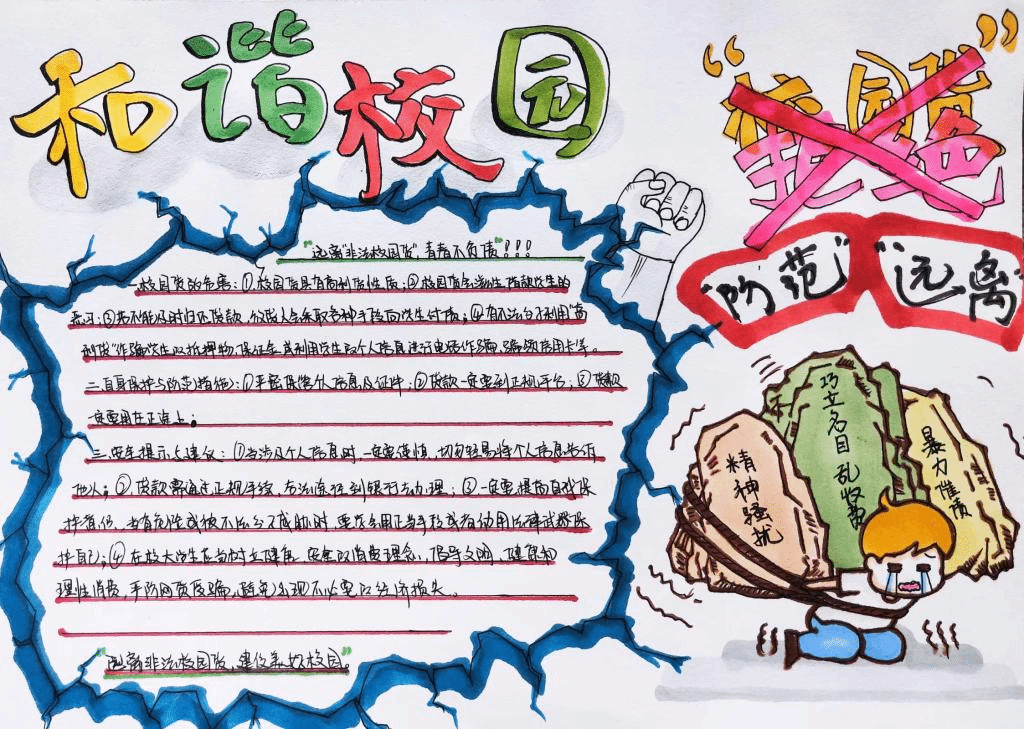 和谐校园
“校园贷”
拒绝
“防范”“远离”
“远离“非法校园贷”青春不负债”!!!
一.校园贷的危害:①校园贷具有高利贷性质;②校园贷会滋生借款学生的
恶习;③若不能及时归还贷款,放贷人会采取各种手段向学生讨债;④有不法分子利用“高
利贷”诈骗学生的抵押物,保证金或利用学生的个人信息进行电话诈骗,骗领信用卡等。
二.自身保护与防范措施:①严密保管个人信息及证件;②贷款一定要到正规平台;③贷款
一定要用在正途上;
三.安全提示与建议:①当涉及个人信息时,一定要谨慎,切勿轻易将个人信息告诉
他人;②贷款需通过正规手续,方法途径到银行办理;③一定要提高自我保
护意识,
护自己;④在校大学生应当树立健康,安全的消费理念,倡导文明,健康和
理性消费,严防网贷受骗,避免出现不必要的经济损失。
“远离非法校园贷,建设美好校园”
精神骚扰
巧立名目 乱收费
暴力催债